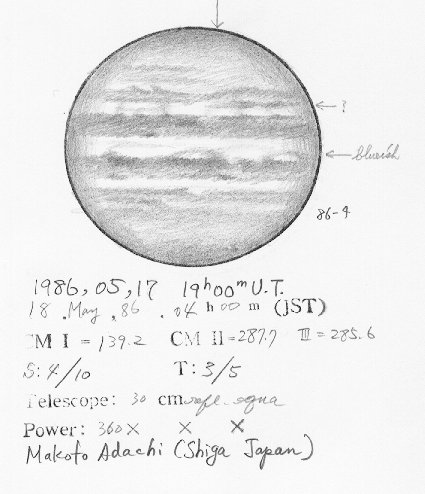 ?
blueish
86-4
1986,05,17 19h00m U.T.
18 .May .86 .04 h 00 m (JST)
CM I = 139.2 CM II=287.7 III=285.6
S:4/10 T:3/5
Telescope: 30 cm refl.
Power: 360× × ×
Makoto Adachi (Shiga Japan)